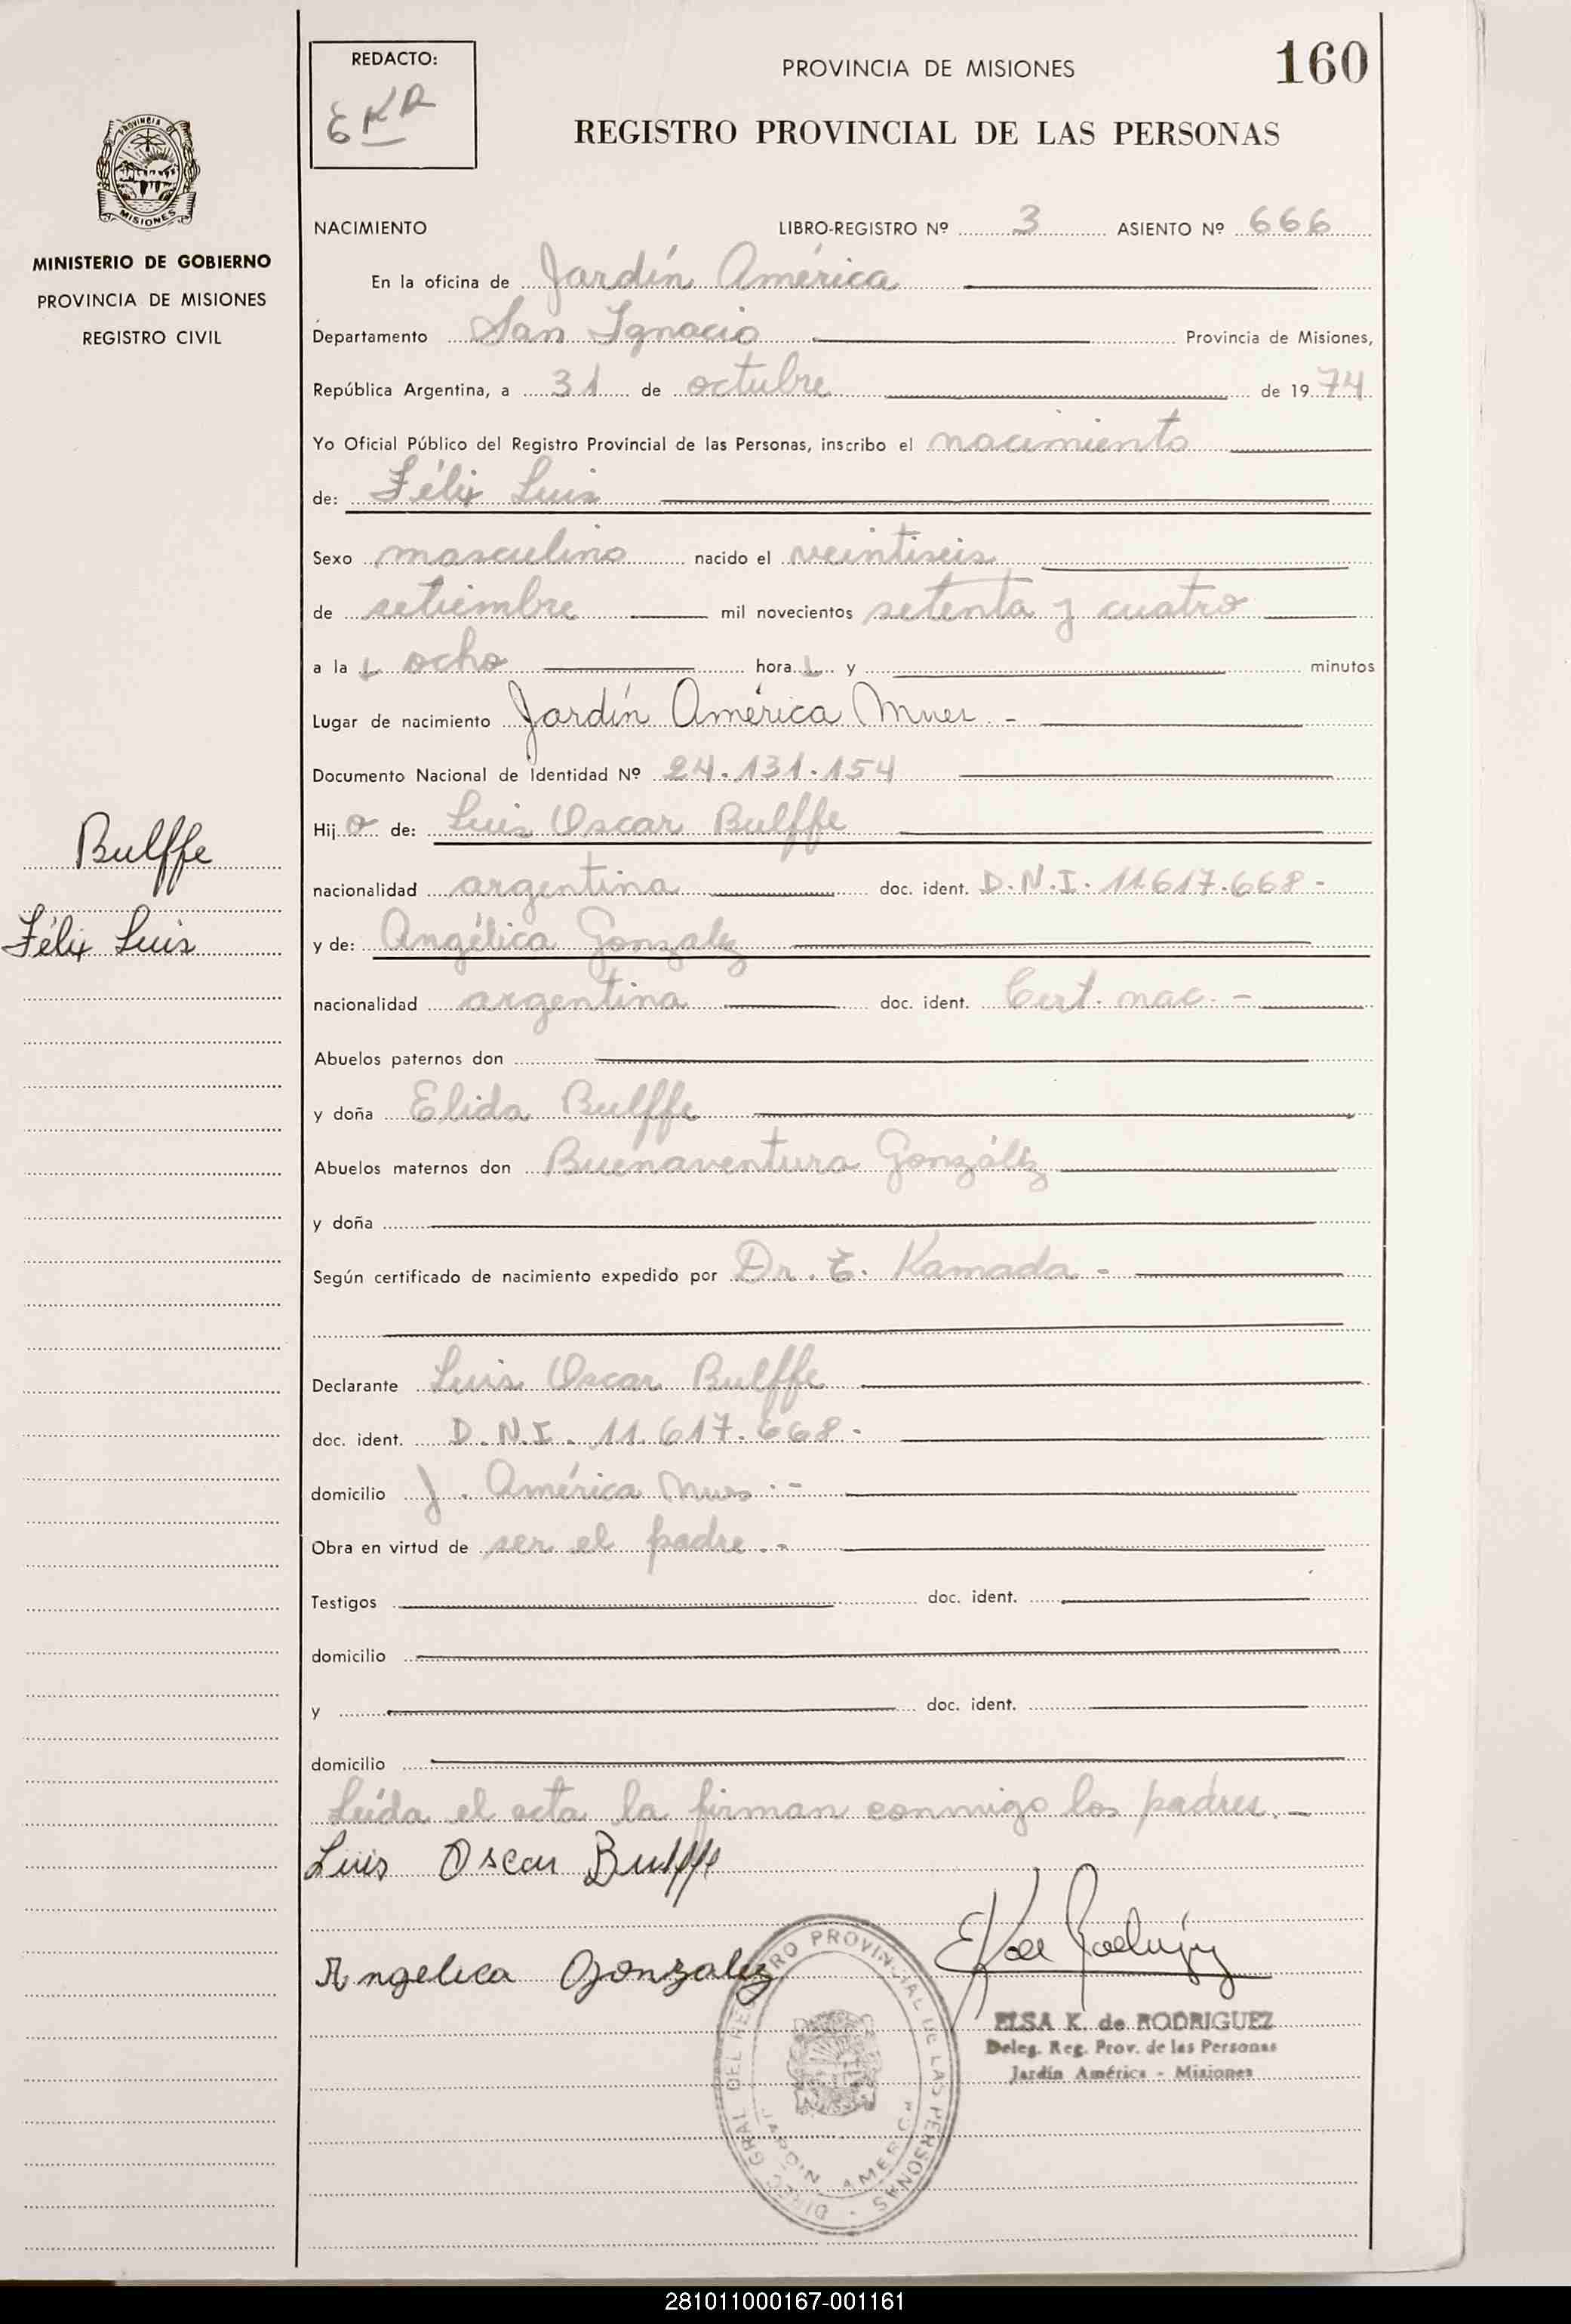 REDACTO:
EKR
PROVINCIA DE MISIONES
160
REGISTRO PROVINCIAL DE LAS PERSONAS
PROVINCIA DE
MISIONES
MINISTERIO DE GOBIERNO
PROVINCIA DE MISIONES
REGISTRO CIVIL
NACIMIENTO LIBRO-REGISTRO Nº 3 ASIENTO Nº 666
En la oficina de Jardín América
Departamento San Ignacio Provincia de Misiones,
República Argentina, a 31 de octubre de 1974
Yo Oficial Público del Registro Provincial de las Personas, inscribo el nacimiento
de: Félix Luis
Sexo masculino nacido el veintiseis
de setiembre mil novecientos setenta y cuatro
a la s ocho hora s y minutos
Lugar de nacimiento Jardín América Mnes -
Documento Nacional de Identidad Nº 24.131.154
Hijo de: Luis Oscar Bulffe
Bulffe
Félix Luis
nacionalidad argentina doc. ident. D.N.I. 11.617.668-
y de: Angélica Gonzalez
nacionalidad argentina doc. ident. Cert. nac. -
Abuelos paternos don
y doña Elida Bulffe
Abuelos maternos don Buenaventura González
y doña
Según certificado de nacimiento expedido por Dr. E. Kamada -
Declarante Luis Oscar Bulffe
doc. ident. D.N.I. 11.617.668-
domicilio J. América Mnes.-
Obra en virtud de ser el padre.-
Testigos doc. ident.
domicilio
y doc. ident.
domicilio
Leída el acta la firman conmigo los padres.-
Luis Oscar Bulffe
Angelica Gonzalez
ELSA K. de RODRIGUEZ
Deleg. Reg. Prov. de las Personas
Jardín América - Misiones
DIREC GRAL DEL REGISTRO PROVINCIAL DE LAS PERSONAS
JARDIN AMERICA
281011000167-001161